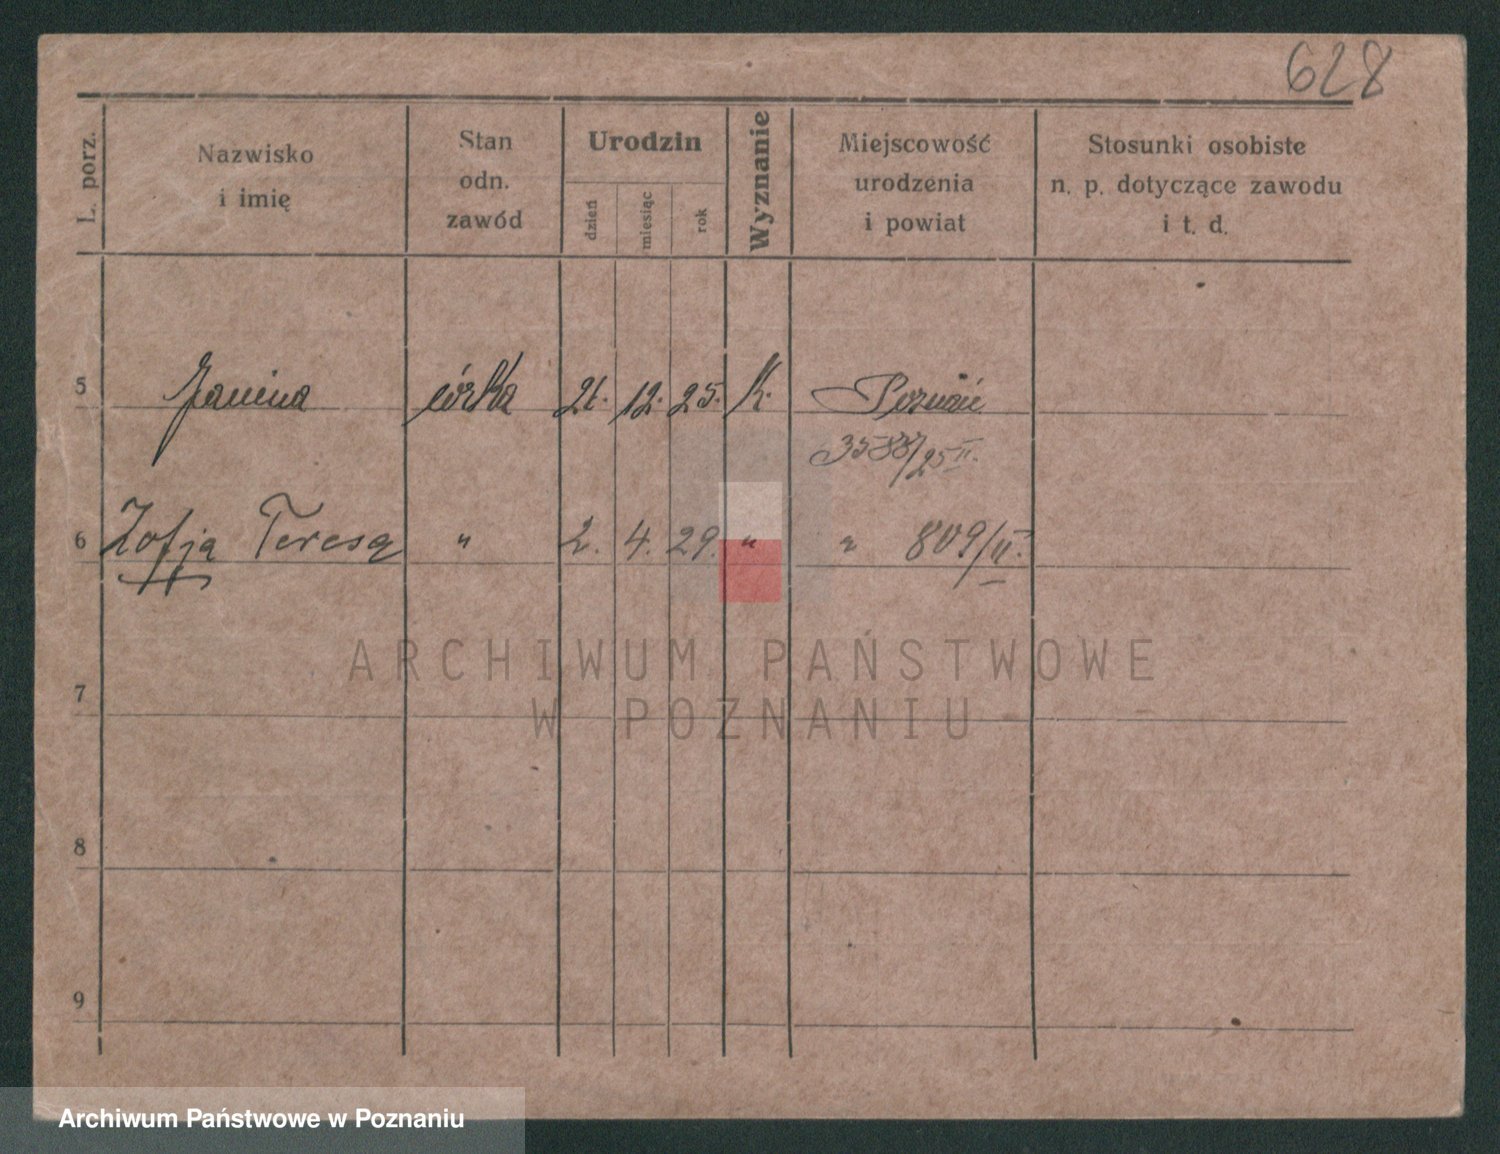 628
L. porz.
Nazwisko
i imię
Stan
odn.
zawód
Urodzin
dzień
miesiąc
rok
Wyznanie
Miejscowość
urodzenia
i powiat
Stosunki osobiste
n. p. dotyczące zawodu
i t. d.
5 Janina córka 21. 12. 25. K. Poznań
3588/25 II.
6 Zofja Teresa " 2. 4. 29. " " 809/II.
ARCHIWUM PAŃSTWOWE
W POZNANIU
7
8
9
Archiwum Państwowe w Poznaniu